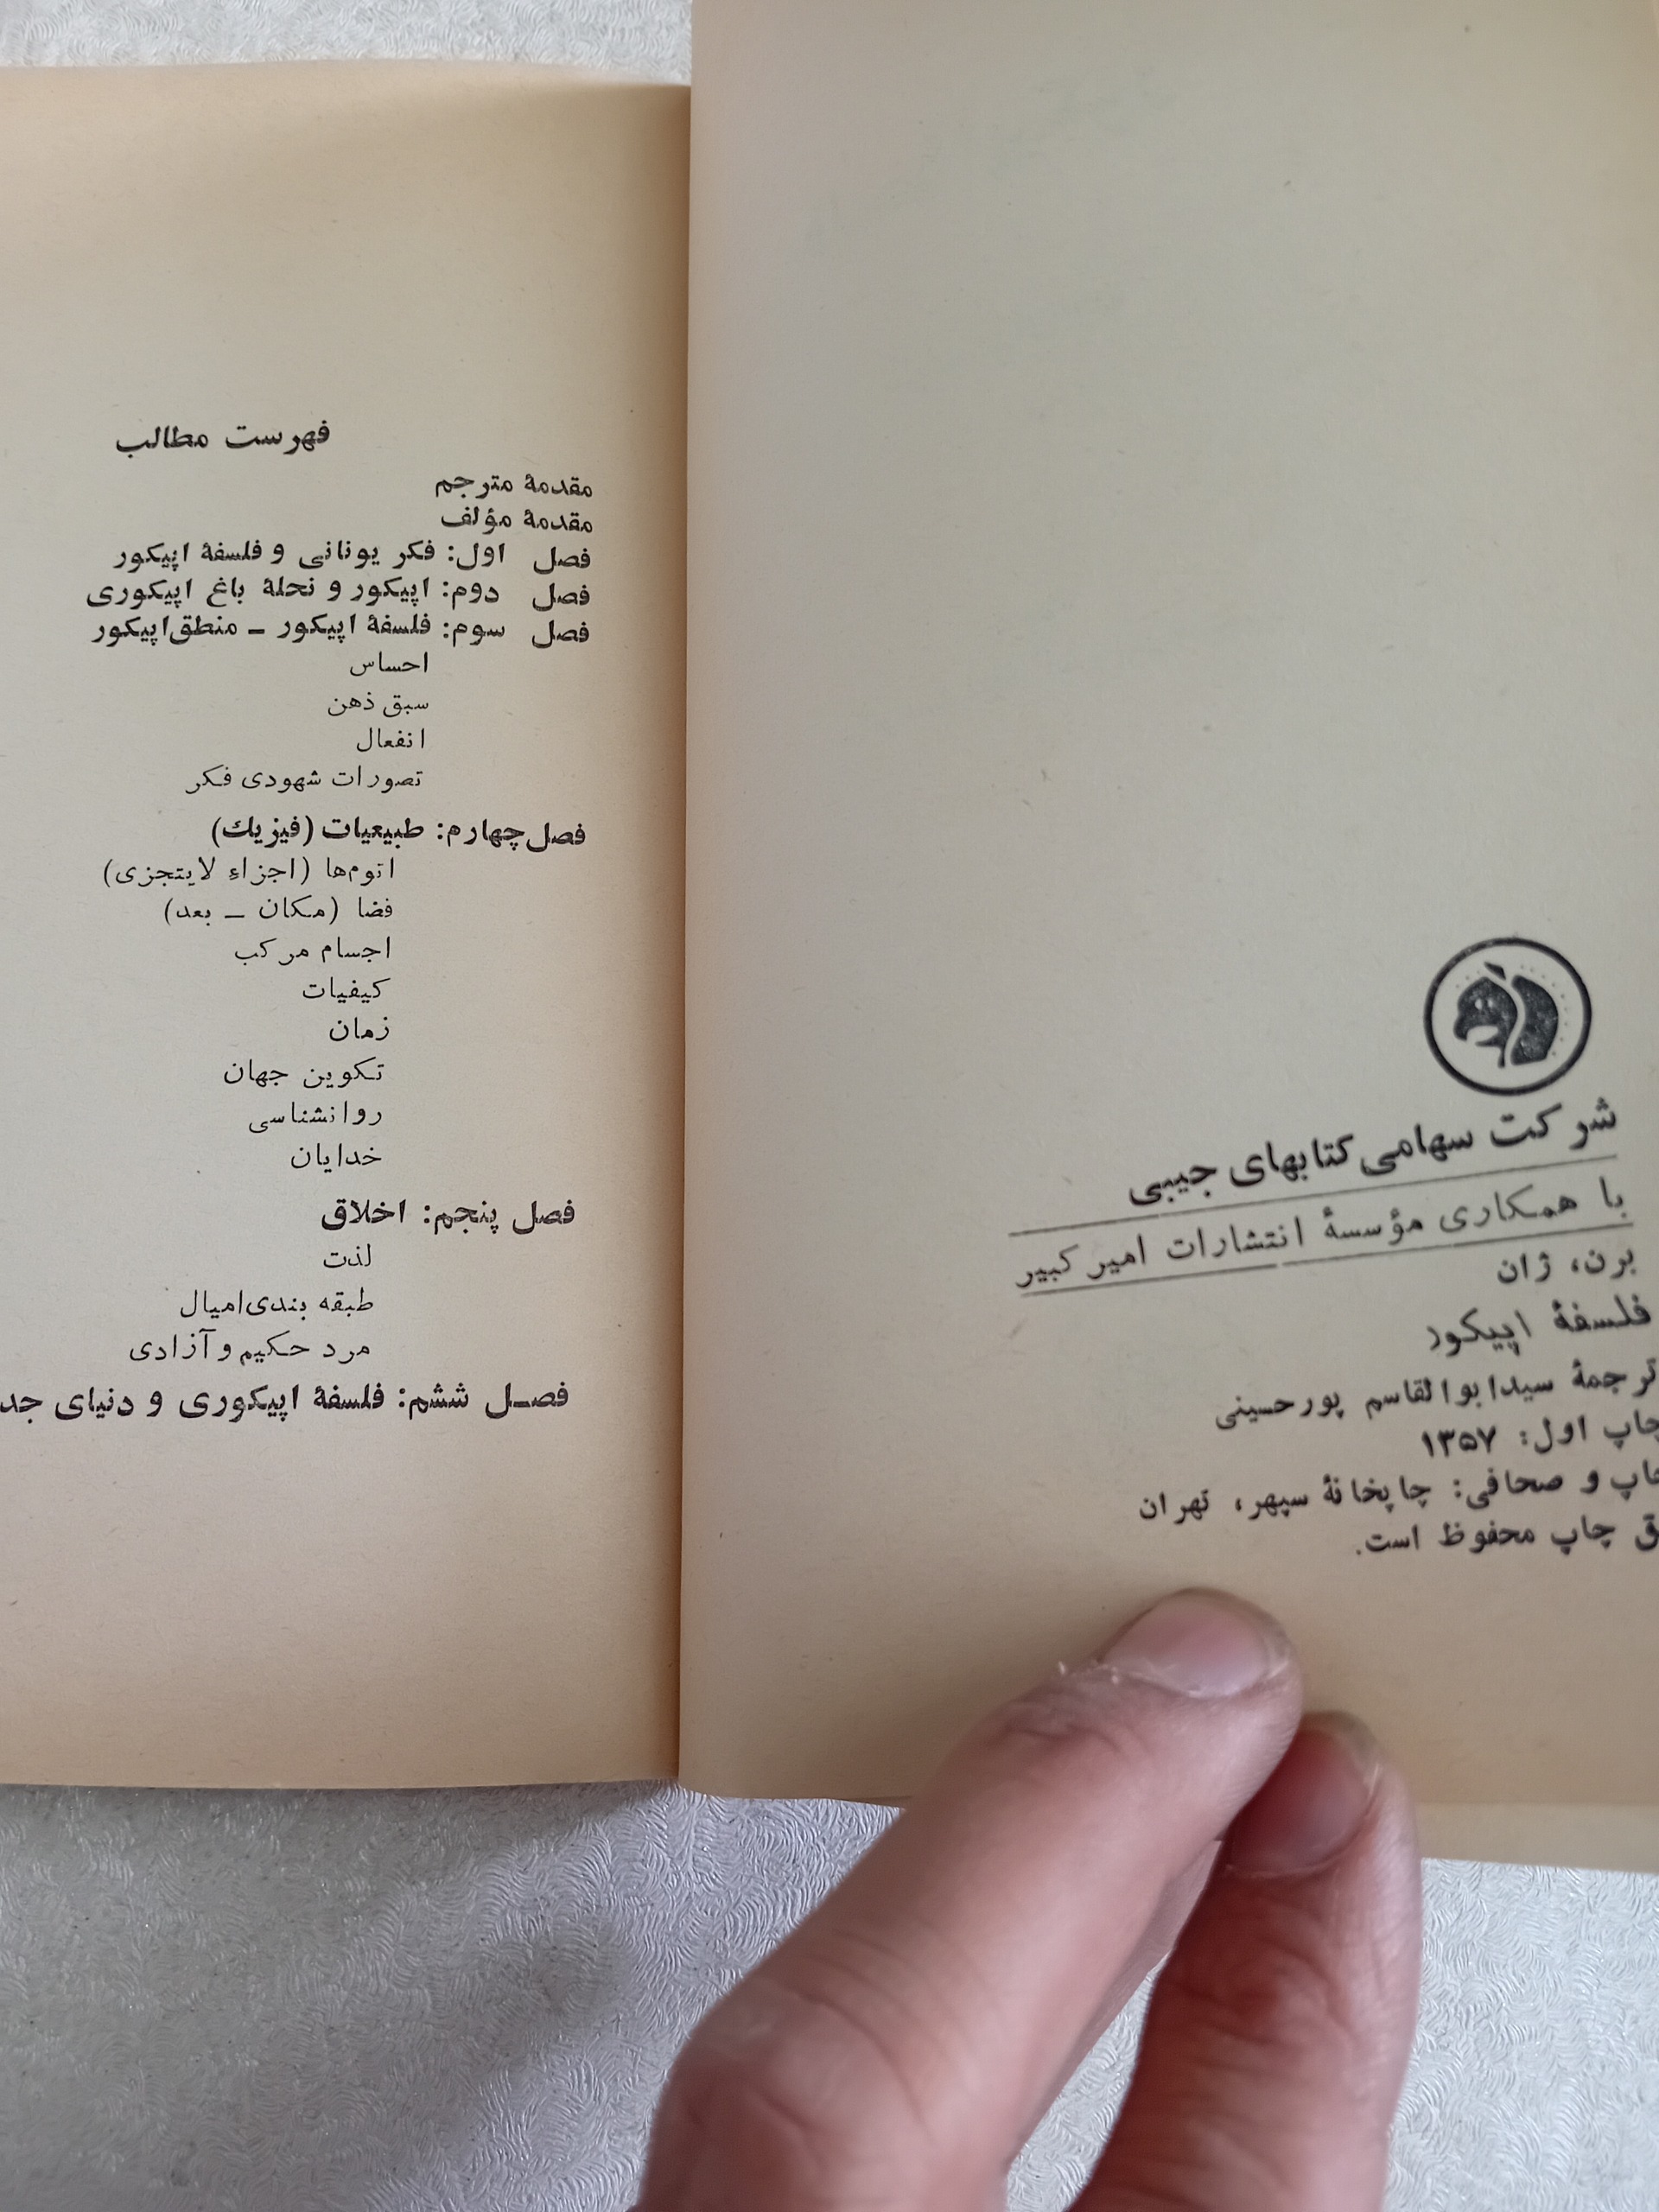 شرکت سهامی کتابهای جیبی
با همکاری مؤسسهٔ انتشارات امیرکبیر
برن، ژان
فلسفهٔ اپیکور
ترجمهٔ سیدابوالقاسم پورحسینی
چاپ اول: ۱۳۵۷
چاپ و صحافی: چاپخانهٔ سپهر، تهران
چاپ محفوظ است.
فهرست مطالب
مقدمهٔ مترجم
مقدمهٔ مؤلف
فصل اول: فکر یونانی و فلسفهٔ اپیکور
فصل دوم: اپیکور و نحلهٔ باغ اپیکوری
فصل سوم: فلسفهٔ اپیکور ـ منطق اپیکور
احساس
سبق ذهن
انفعال
تصورات شهودی فکر
فصل چهارم: طبیعیات (فیزیک)
اتوم‌ها (اجزاءِ لایتجزی)
فضا (مکان ـ بعد)
اجسام مرکب
کیفیات
زمان
تکوین جهان
روانشناسی
خدایان
فصل پنجم: اخلاق
لذت
طبقه بندی امیال
مرد حکیم و آزادی
فصل ششم: فلسفهٔ اپیکوری و دنیای